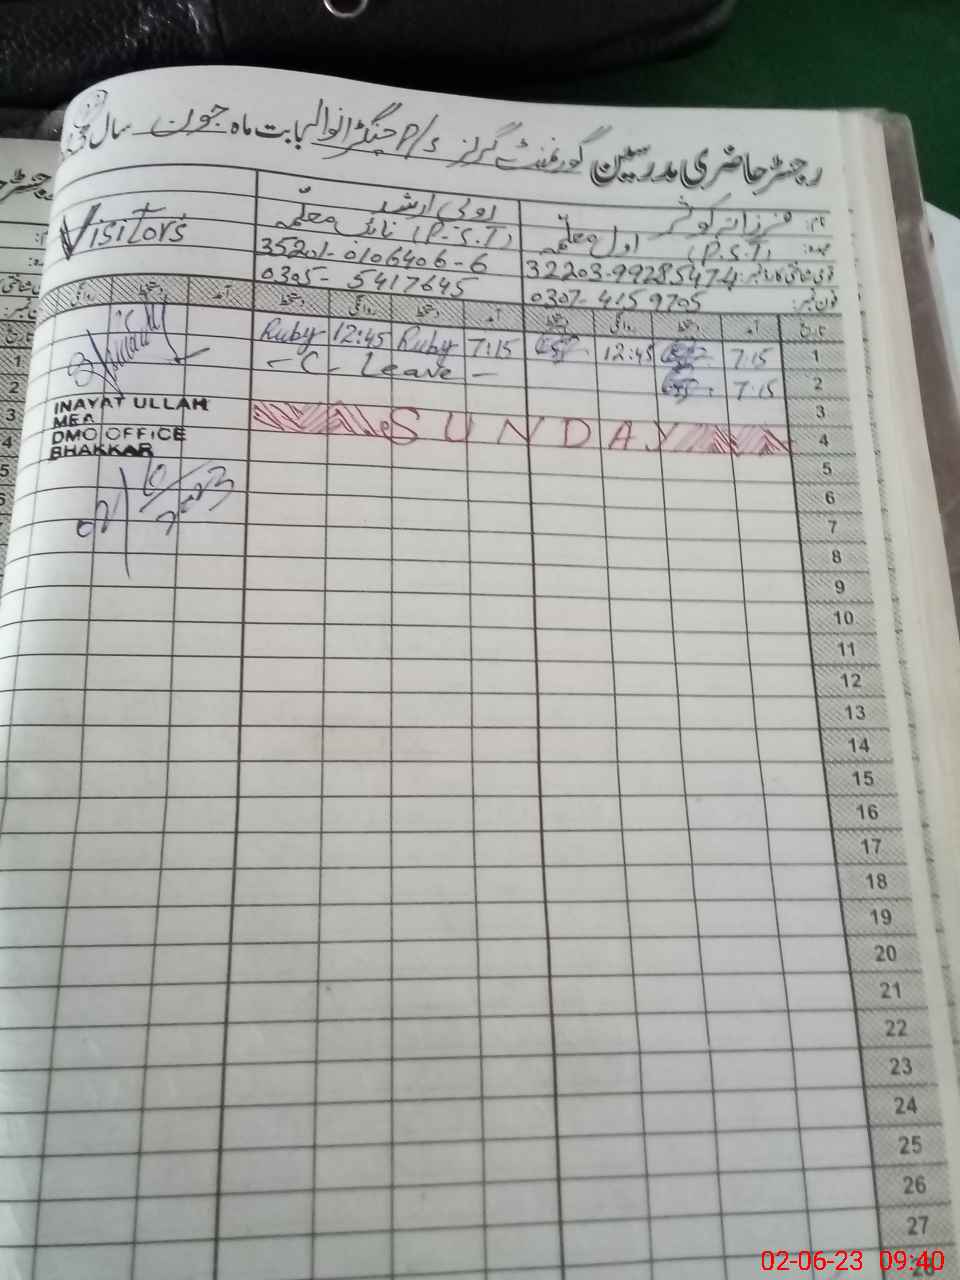 رجسٹر حاضری مدرسین گورنمنٹ گرلز P/s جنگڑانوالہ بابت ماہ جون سال
نام: فرزانہ کوثر
عہدہ: اول معلمہ (P.S.T)
قومی شناختی کارڈ نمبر: 32203-99285474
فون نمبر: 0307-4159705
روبی ارشد
نائب معلمہ (P.S.T)
35201-0106406-6
0305-5417645
Visitors
تاریخ آمد دستخط روانگی دستخط آمد دستخط روانگی دستخط آمد دستخط روانگی
1 7:15 12:45 7:15 Ruby 12:45 Ruby
2 7:15 - C - Leave -
3
4 SUNDAY
INAYAT ULLAH
MEA
DMO OFFICE
BHAKKAR
5
6
7
8
9
10
11
12
13
14
15
16
17
18
19
20
21
22
23
24
25
26
27
28
02-06-23 09:40